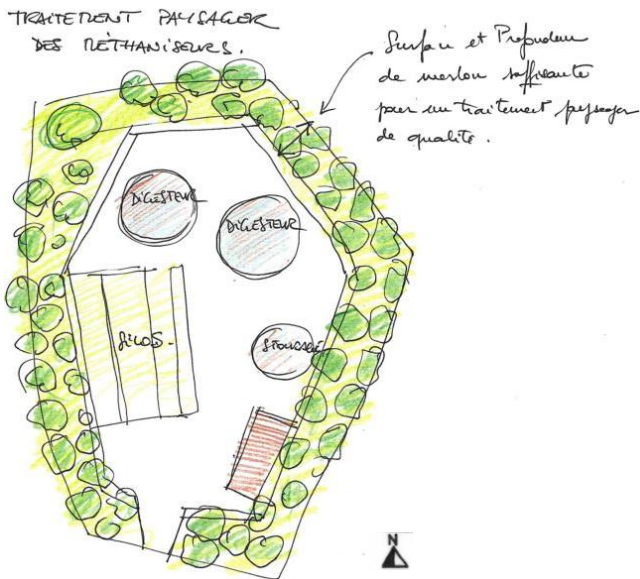 TRAITEMENT PAYSAGER
DES MÉTHANISEURS.
Surface et Profondeur
de merlon suffisante
pour un traitement paysager
de qualité.
DIGESTEUR
DIGESTEUR
SILOS.
STOCKAGE
N